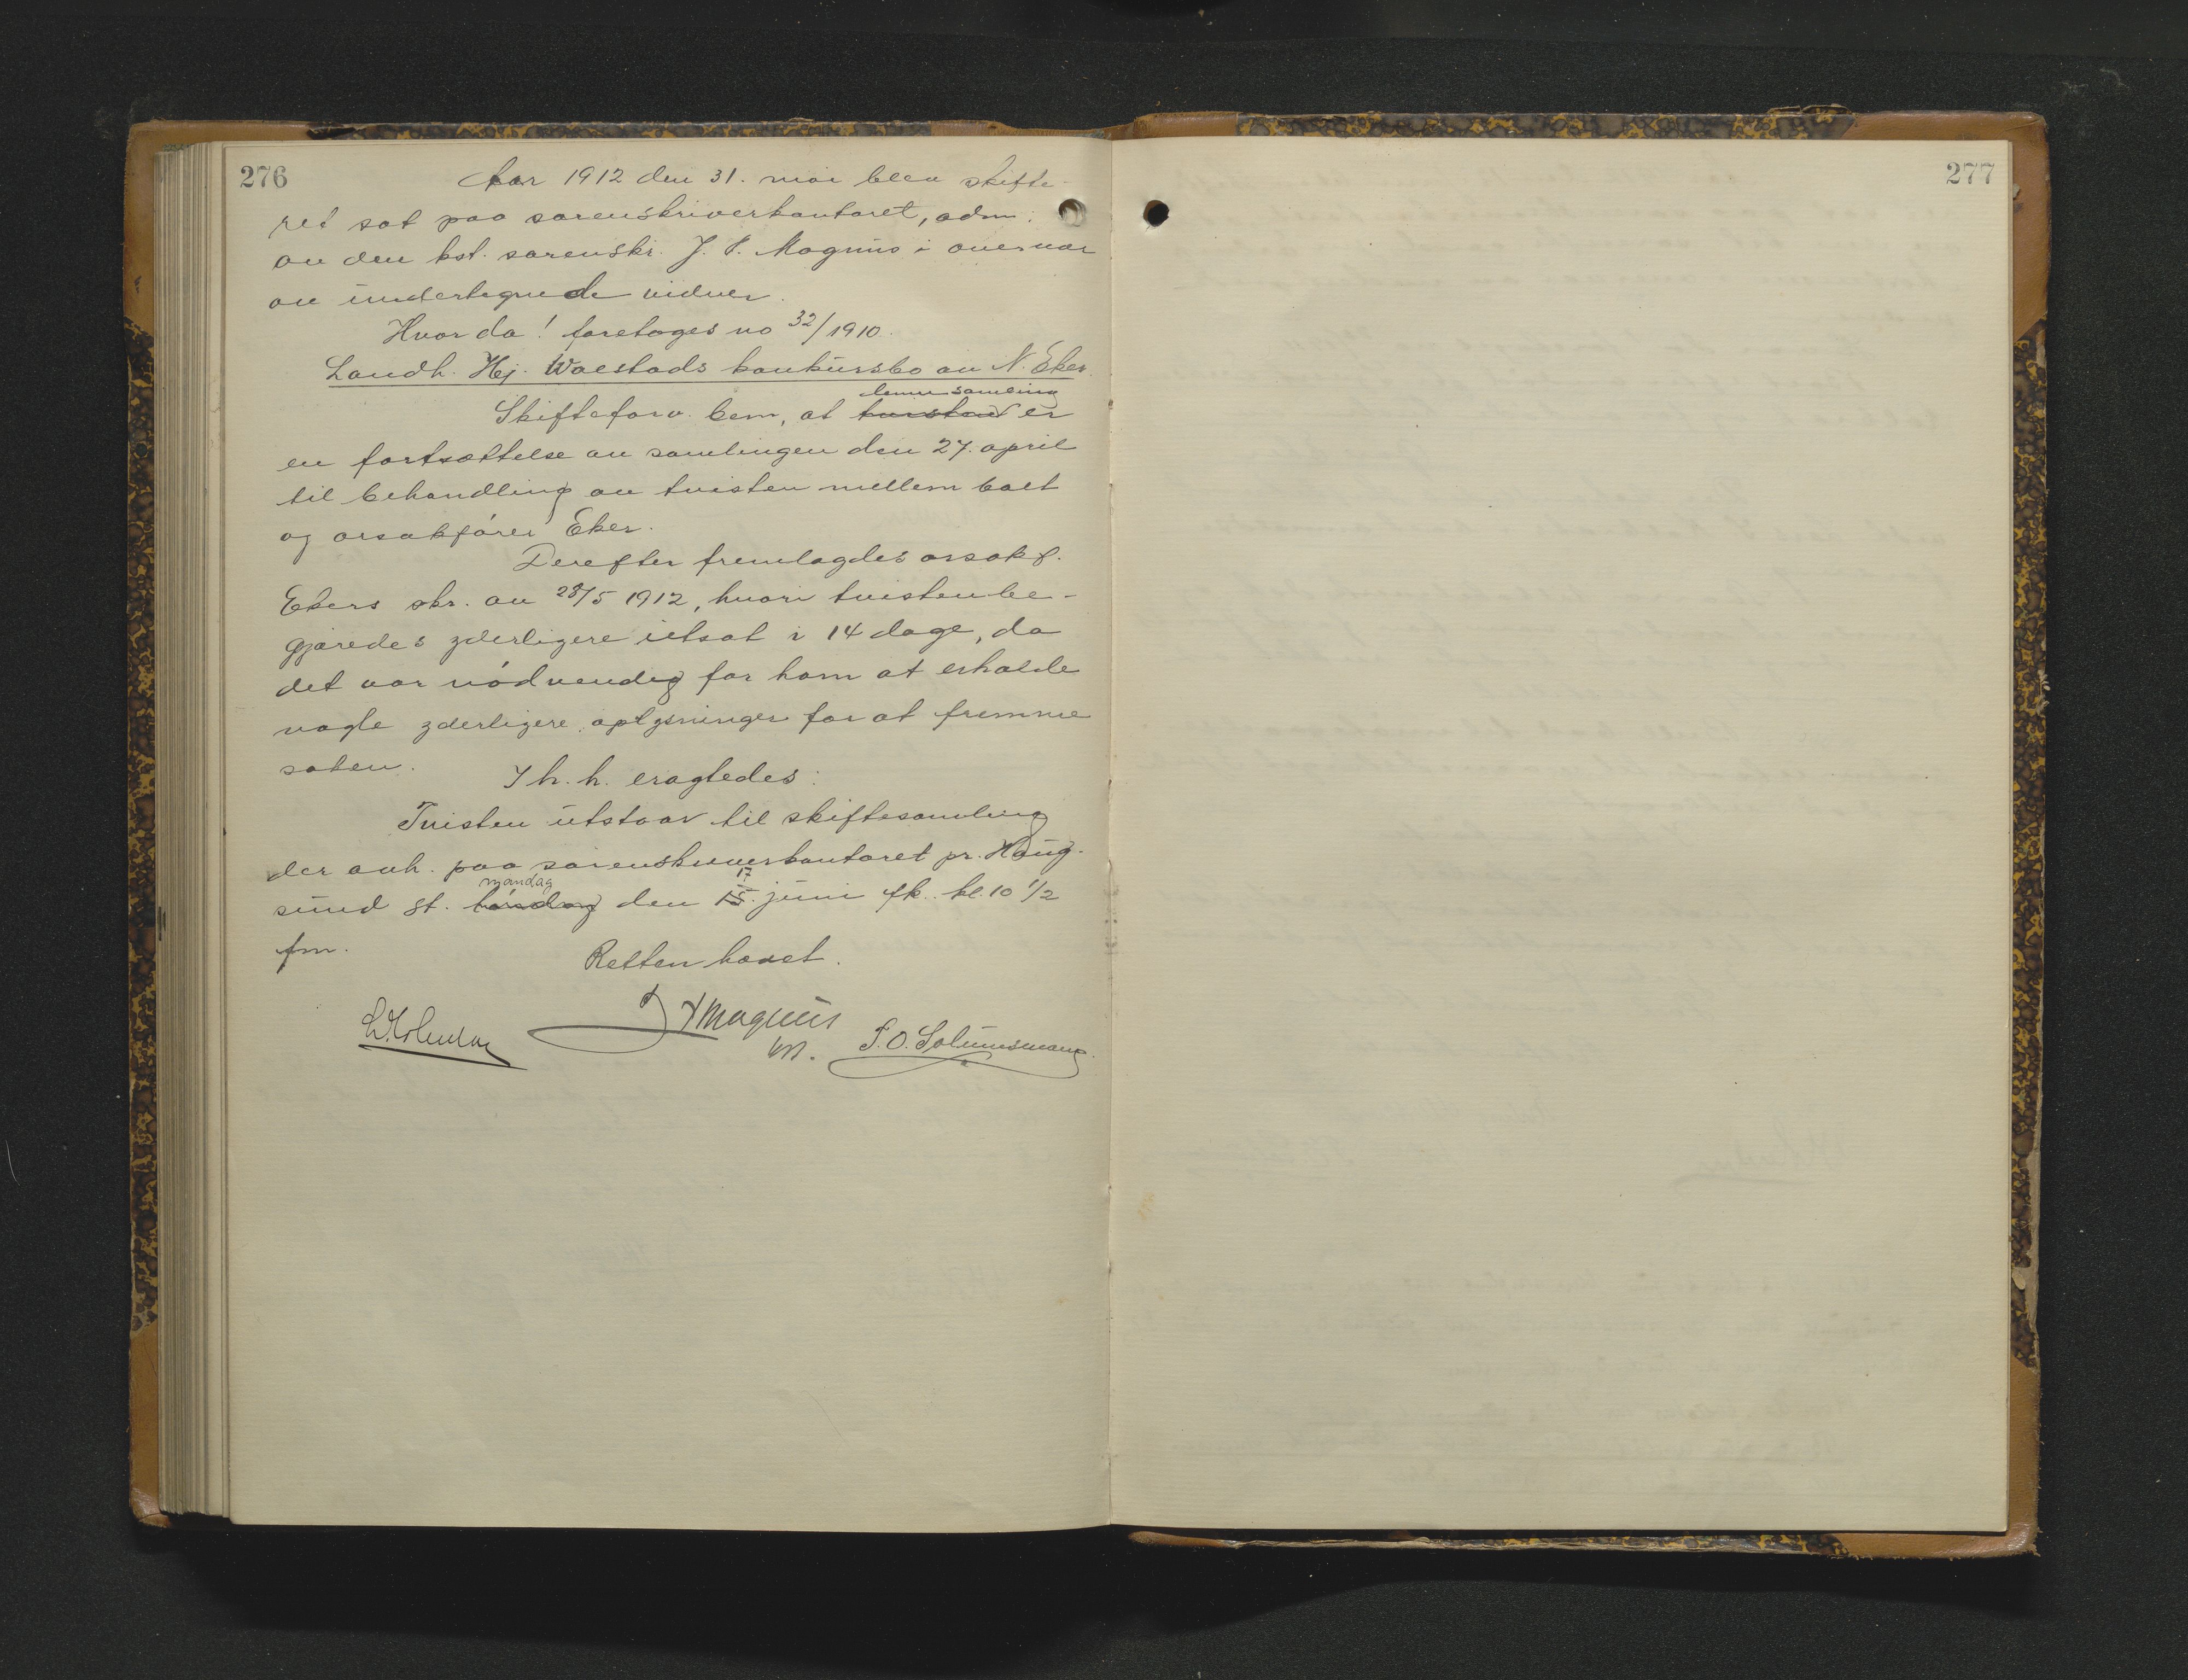 276
Aar 1912 den 31. mai blev skifte-
ret sat paa sorenskriverkontoret, adm.
av den kst. sorenskr. J. P. Magnus i overvær
av undertegnede vidner.
Hvorda! foretoges no 32/1910.
Landh. Hej. Waestads konkursbo av N. Eker.
denne samling
Skifteforv. bem, at tvisten er
en fortsættelse av samlingen den 27. april
til behandling av tvisten mellem boet
og orsakfører Eker.
Derefter fremlagdes orsakf.
Ekers skr. av 28/5 1912, hvori tvisten be-
gjæredes yderligere utsat i 14 dage, da
det var nødvendig for ham at erholde
nogle yderligere oplysninger for at fremme
saken.
I h. h. eragtedes:
Tvisten utstaar til skiftesamling
der avh. paa sorenskriverkontoret pr. Houg-
mandag 17
sund st. lørdag den 15. juni fk. kl. 10 1/2
fm.
Retten hævet.
J P Magnus
kst.
S. O. Solumsmoen
277